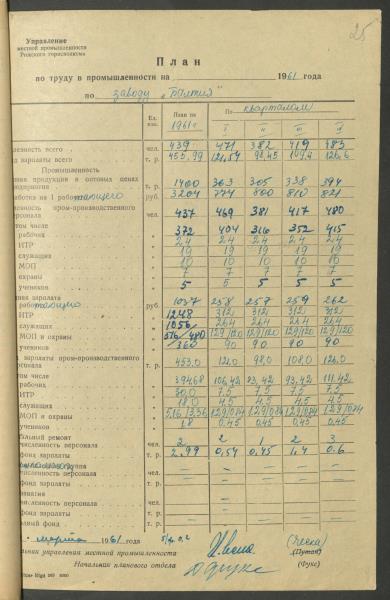 25
Управление
местной промышленности
Рижского горисполкома
План
по труду в промышленности на 1961 года
по заводу „Балтия"
Ед. изм. План на 1961 г. По кварталам
I II III IV
ленность всего чел. 439 471 382 419 483
д зарплаты всего т. р. 455,99 98,45 126,6
Промышленность
продукция в оптовых ценах
т. р. 1400 363 305 338 394
аботка на 1 работающего руб. 3204 774 800 810 821
енность пром-производственного
рсонала чел. 437 469 381 417 480
том числе
рабочих „ 372 404 316 352 415
ИТР „ 24 24 24 24 24
служащих „ 19 19 19 19 19
МОП „ 10 10 10 10 10
охраны „ 7 7 7 7 7
учеников „ 5 5 5 5 5
зарплата
работающего руб. 1037 258 257 259 262
ИТР „ 1248 312 312 312 312
служащих „ 1056 264 264 264 264
МОП и охраны „ 516/480 129/120 129/120 129/120 129/120
учеников „ 360 90 90 90 90
зарплаты пром-производственного
рсонала т. р. 453,0 121,0 98,0 108,0 126,0
том числе
рабочих „ 394,68 106,42 93,42 111,42
ИТР „ 30,0 7,5 7,5 7,5 7,5
служащих „ 18,0 4,5 4,5 4,5 4,5
МОП и охраны „ 5,16/3,36 1,29/0,84 1,29/0,84 1,29/0,84 1,29/0,84
учеников „ 1,8 0,45 0,45 0,45 0,45
альный ремонт
численность персонала чел. 2 2 1 2 3
фонд зарплаты т. р. 2,99 0,54 0,45 1,4 0,6
группа
численность персонала чел. — — — — —
фонд зарплаты т. р. — — — — —
численность персонала чел. —
фонд зарплаты т. р. —
фонд т. р. —
„ марта 1961 года
альник управления местной промышленности
Начальник планового отдела (Фукс)